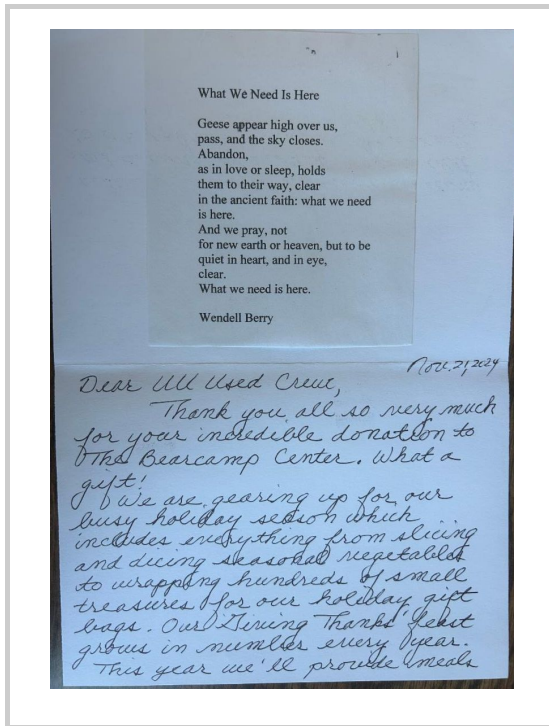 What We Need Is Here
Geese appear high over us,
pass, and the sky closes.
Abandon,
as in love or sleep, holds
them to their way, clear
in the ancient faith: what we need
is here.
And we pray, not
for new earth or heaven, but to be
quiet in heart, and in eye,
clear.
What we need is here.
Wendell Berry
Nov. 21, 2024
Dear UU Used Crew,
Thank you all so very much
for your incredible donation to
The Bearcamp Center. What a
gift!
We are gearing up for our
busy holiday season which
includes everything from slicing
and dicing seasonal vegetables
to wrapping hundreds of small
treasures for our holiday gift
bags. Our Giving Thanks feast
grows in number every year.
This year we'll provide meals